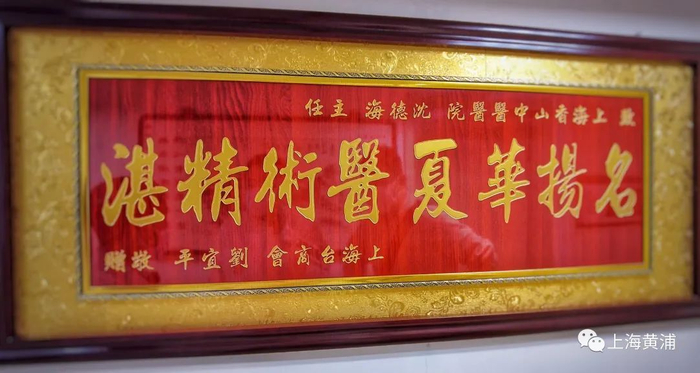 致 上海香山中醫醫院 沈德海 主任
名揚華夏 醫術精湛
上海台商會 劉宜平 敬贈
上海黄浦